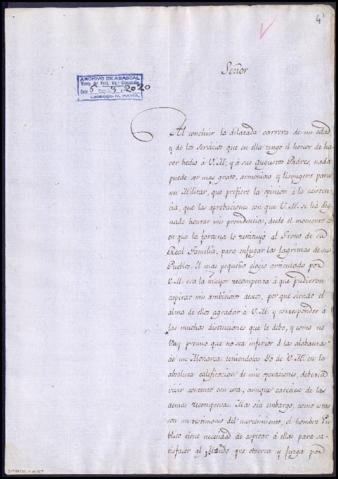 4
Señor
ARCHIVO DE ABASCAL
Al concluir la dilatada carrera de mi edad
y de los servicios que en ella tengo el honor de ha-
ver hecho á V.M. y á sus Augustos Padres, nada
puede ser mas grato, armonioso y lisongero para
un Militar, que prefiere la opinion à la existen-
cia, que las aprobaciones con que V.M. se ha dig-
nado honrar mis providencias, desde el momento
en que la fortuna lo restituyó al Trono de su
Real Familia, para enjugar las lagrimas de sus
Pueblos. El mas pequeño elogio articulado por
V.M. era la mayor recompensa à que pudieron
aspirar mis ambiciosos deseos, por que siendo el
alma de ellos agradar à V.M. y corresponder à
las muchas distinciones que le debo, y como no
hay premio que no sea inferior à las alabanzas
de un Monarca teniendolas Yo de V.M. en la
absoluta calificacion de mis operaciones, deberia
vivir contento con esta, aunque careciese de las
demas recompensas. Mas sin embargo, como estas
son un testimonio del merecimiento, el hombre Pu-
blico tiene necesidad de aspirar à ellas para sa-
tisfacer al Mundo que observa y juzga por